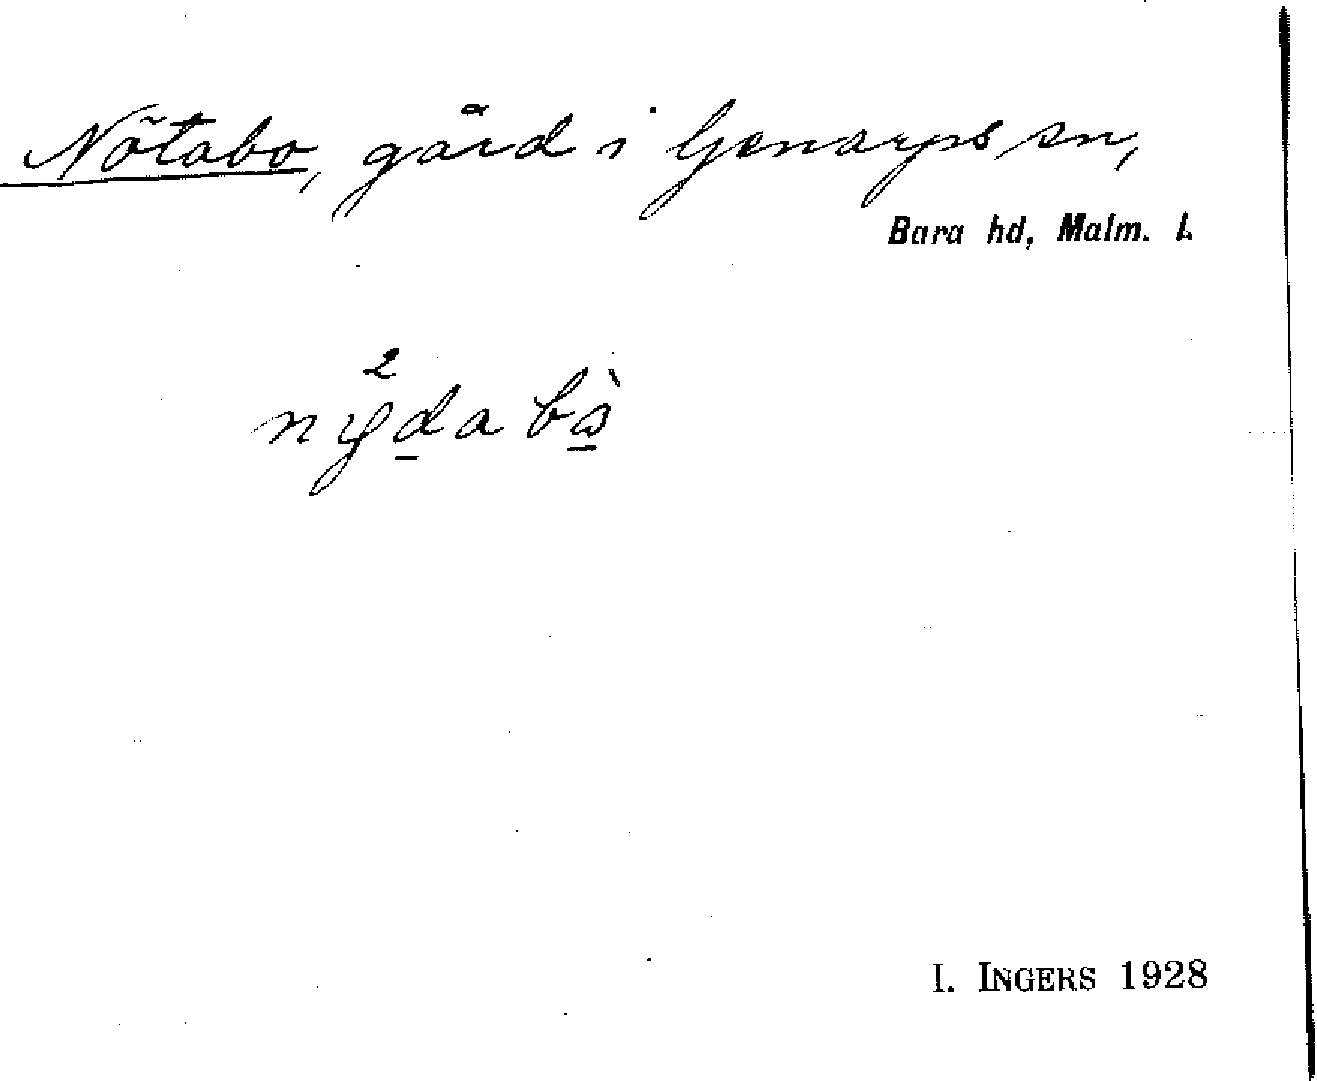 Nötabo, gård i Genarps sn,
Bara hd, Malm. l.
I. INGERS 1928